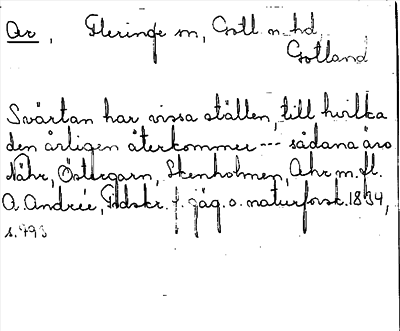 Ar, Fleringe sn, Gotl. n. hd,
Gotland
Svärtan har vissa ställen, till hvilka
den årligen återkommer --- sådana äro
Nähr, Östergarn, Skenholmen, Ahr m. fl.
A. Andrée, Tidskr. f. jäg. o. naturforsk. 1834,
s. 793